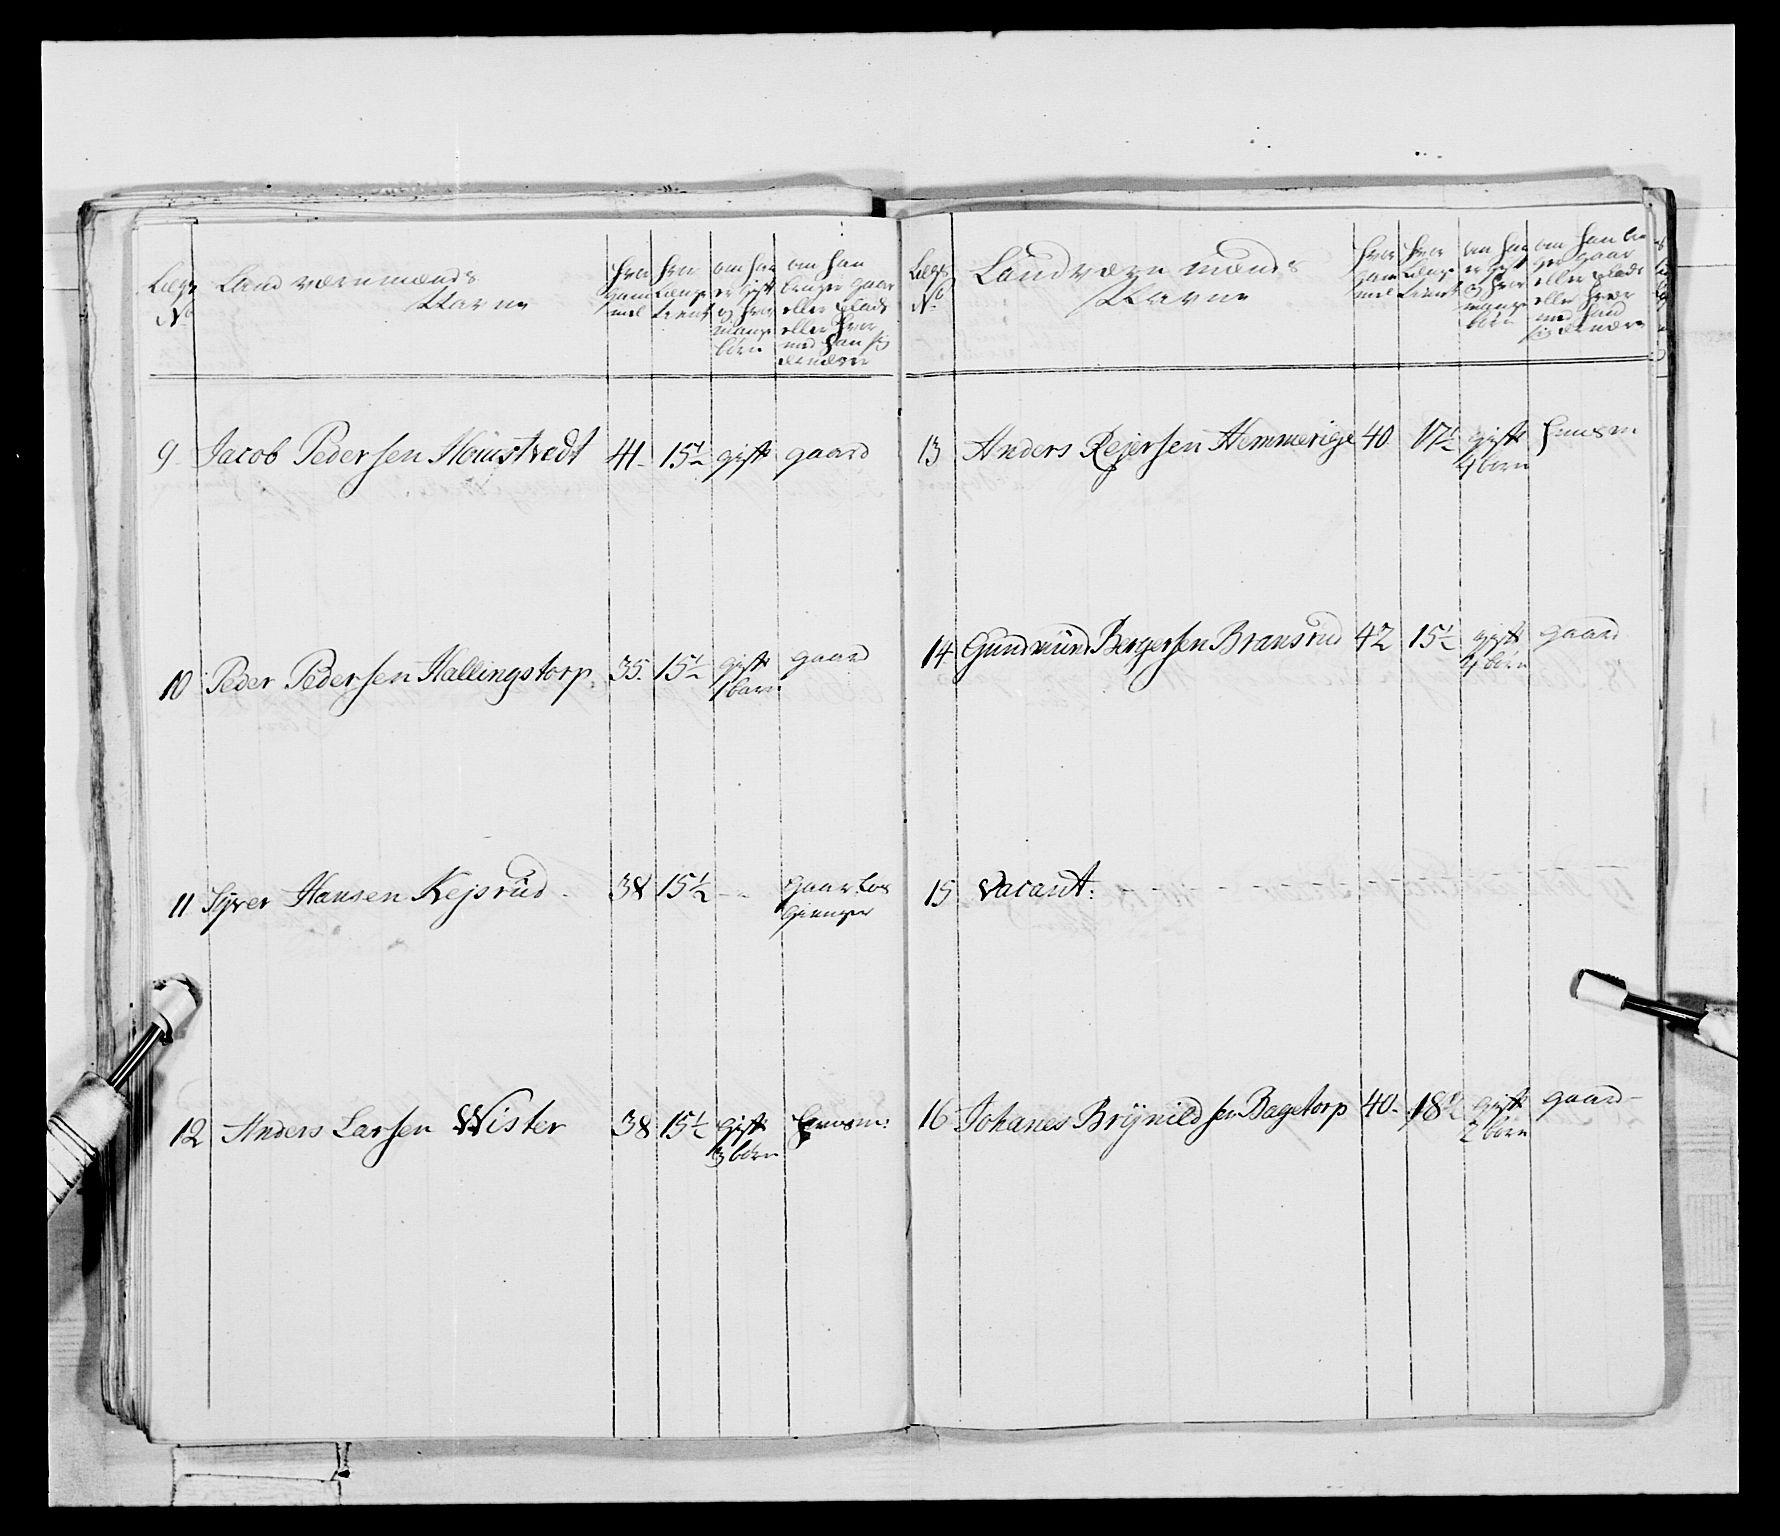 Lægs
No
Landværnmænds
Navne
hvor
gam
mel
hvor
Længe
tient
om han
er gift
og hvor
mange
børn
om han
bruger gaar
eller Plads
eller hvor
med han sig
ernærer
9 Jacob Pedersen Hougstvedt 41. 15½ gift gaard
10 Peder Pedersen Hallingstorp. 35. 15½ gift gaard
1 barn
11 Syver Hansen Kejsrud - 38 15½ - - gaardbor
12 Anders Larsen Wister 38 15½ gift huusm:
3 børn
Lægs
No
Landværnmænds
Navne
hvor
gam
mel
hvor
Længe
tient
om han
er gift
og hvor
mange
børn
om han bru
ger gaar
eller Plads
eller hvor
med hand
sig ernærer
13 Anders Rejersen Hemmerige 40 17½ gift huusm
4 børn
14 Gundmund Bergersen Bransrud 42 15½ gift gaard
børn
15 Vacant:
16 Johanes Brynildsen Bagetorp 40- 18½ gift gaard-
2 børn